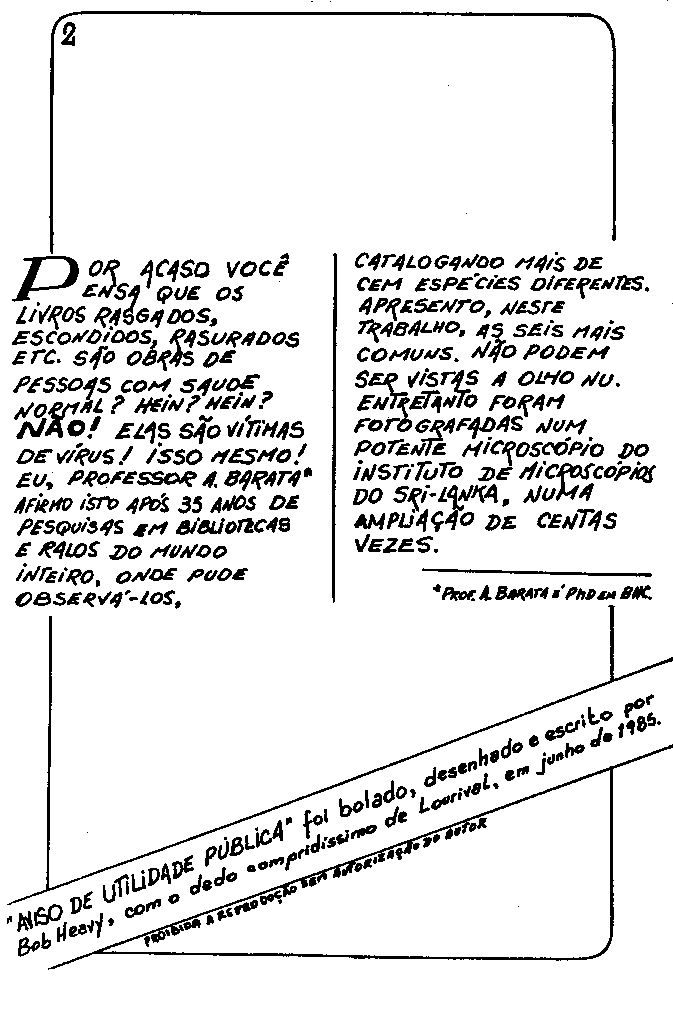 2
POR ACASO VOCÊ
PENSA QUE OS
LIVROS RASGADOS,
ESCONDIDOS, RASURADOS
ETC. SÃO OBRAS DE
PESSOAS COM SAUDE
NORMAL? HEIN? HEIN?
NÃO! ELAS SÃO VÍTIMAS
DE VÍRUS! ISSO MESMO!
EU, PROFESSOR A. BARATA*
AFIRMO ISTO APÓS 35 ANOS DE
PESQUISAS EM BIBLIOTECAS
E RALOS DO MUNDO
INTEIRO, ONDE PUDE
OBSERVÁ-LOS,
CATALOGANDO MAIS DE
CEM ESPÉCIES DIFERENTES.
APRESENTO, NESTE
TRABALHO, AS SEIS MAIS
COMUNS. NÃO PODEM
SER VISTAS A OLHO NU.
ENTRETANTO FORAM
FOTOGRAFADAS NUM
POTENTE MICROSCÓPIO DO
INSTITUTO DE MICROSCÓPIOS
DO SRI-LANKA, NUMA
AMPLIAÇÃO DE CENTAS
VEZES.
*PROF. A. BARATA É PHD EM BNC.
"AVISO DE UTILIDADE PÚBLICA" foi bolado, desenhado e escrito por
Bob Heavy, com o dedo compridíssimo de Lourival, em junho de 1985.
PROIBIDA A REPRODUÇÃO SEM AUTORIZAÇÃO DO AUTOR